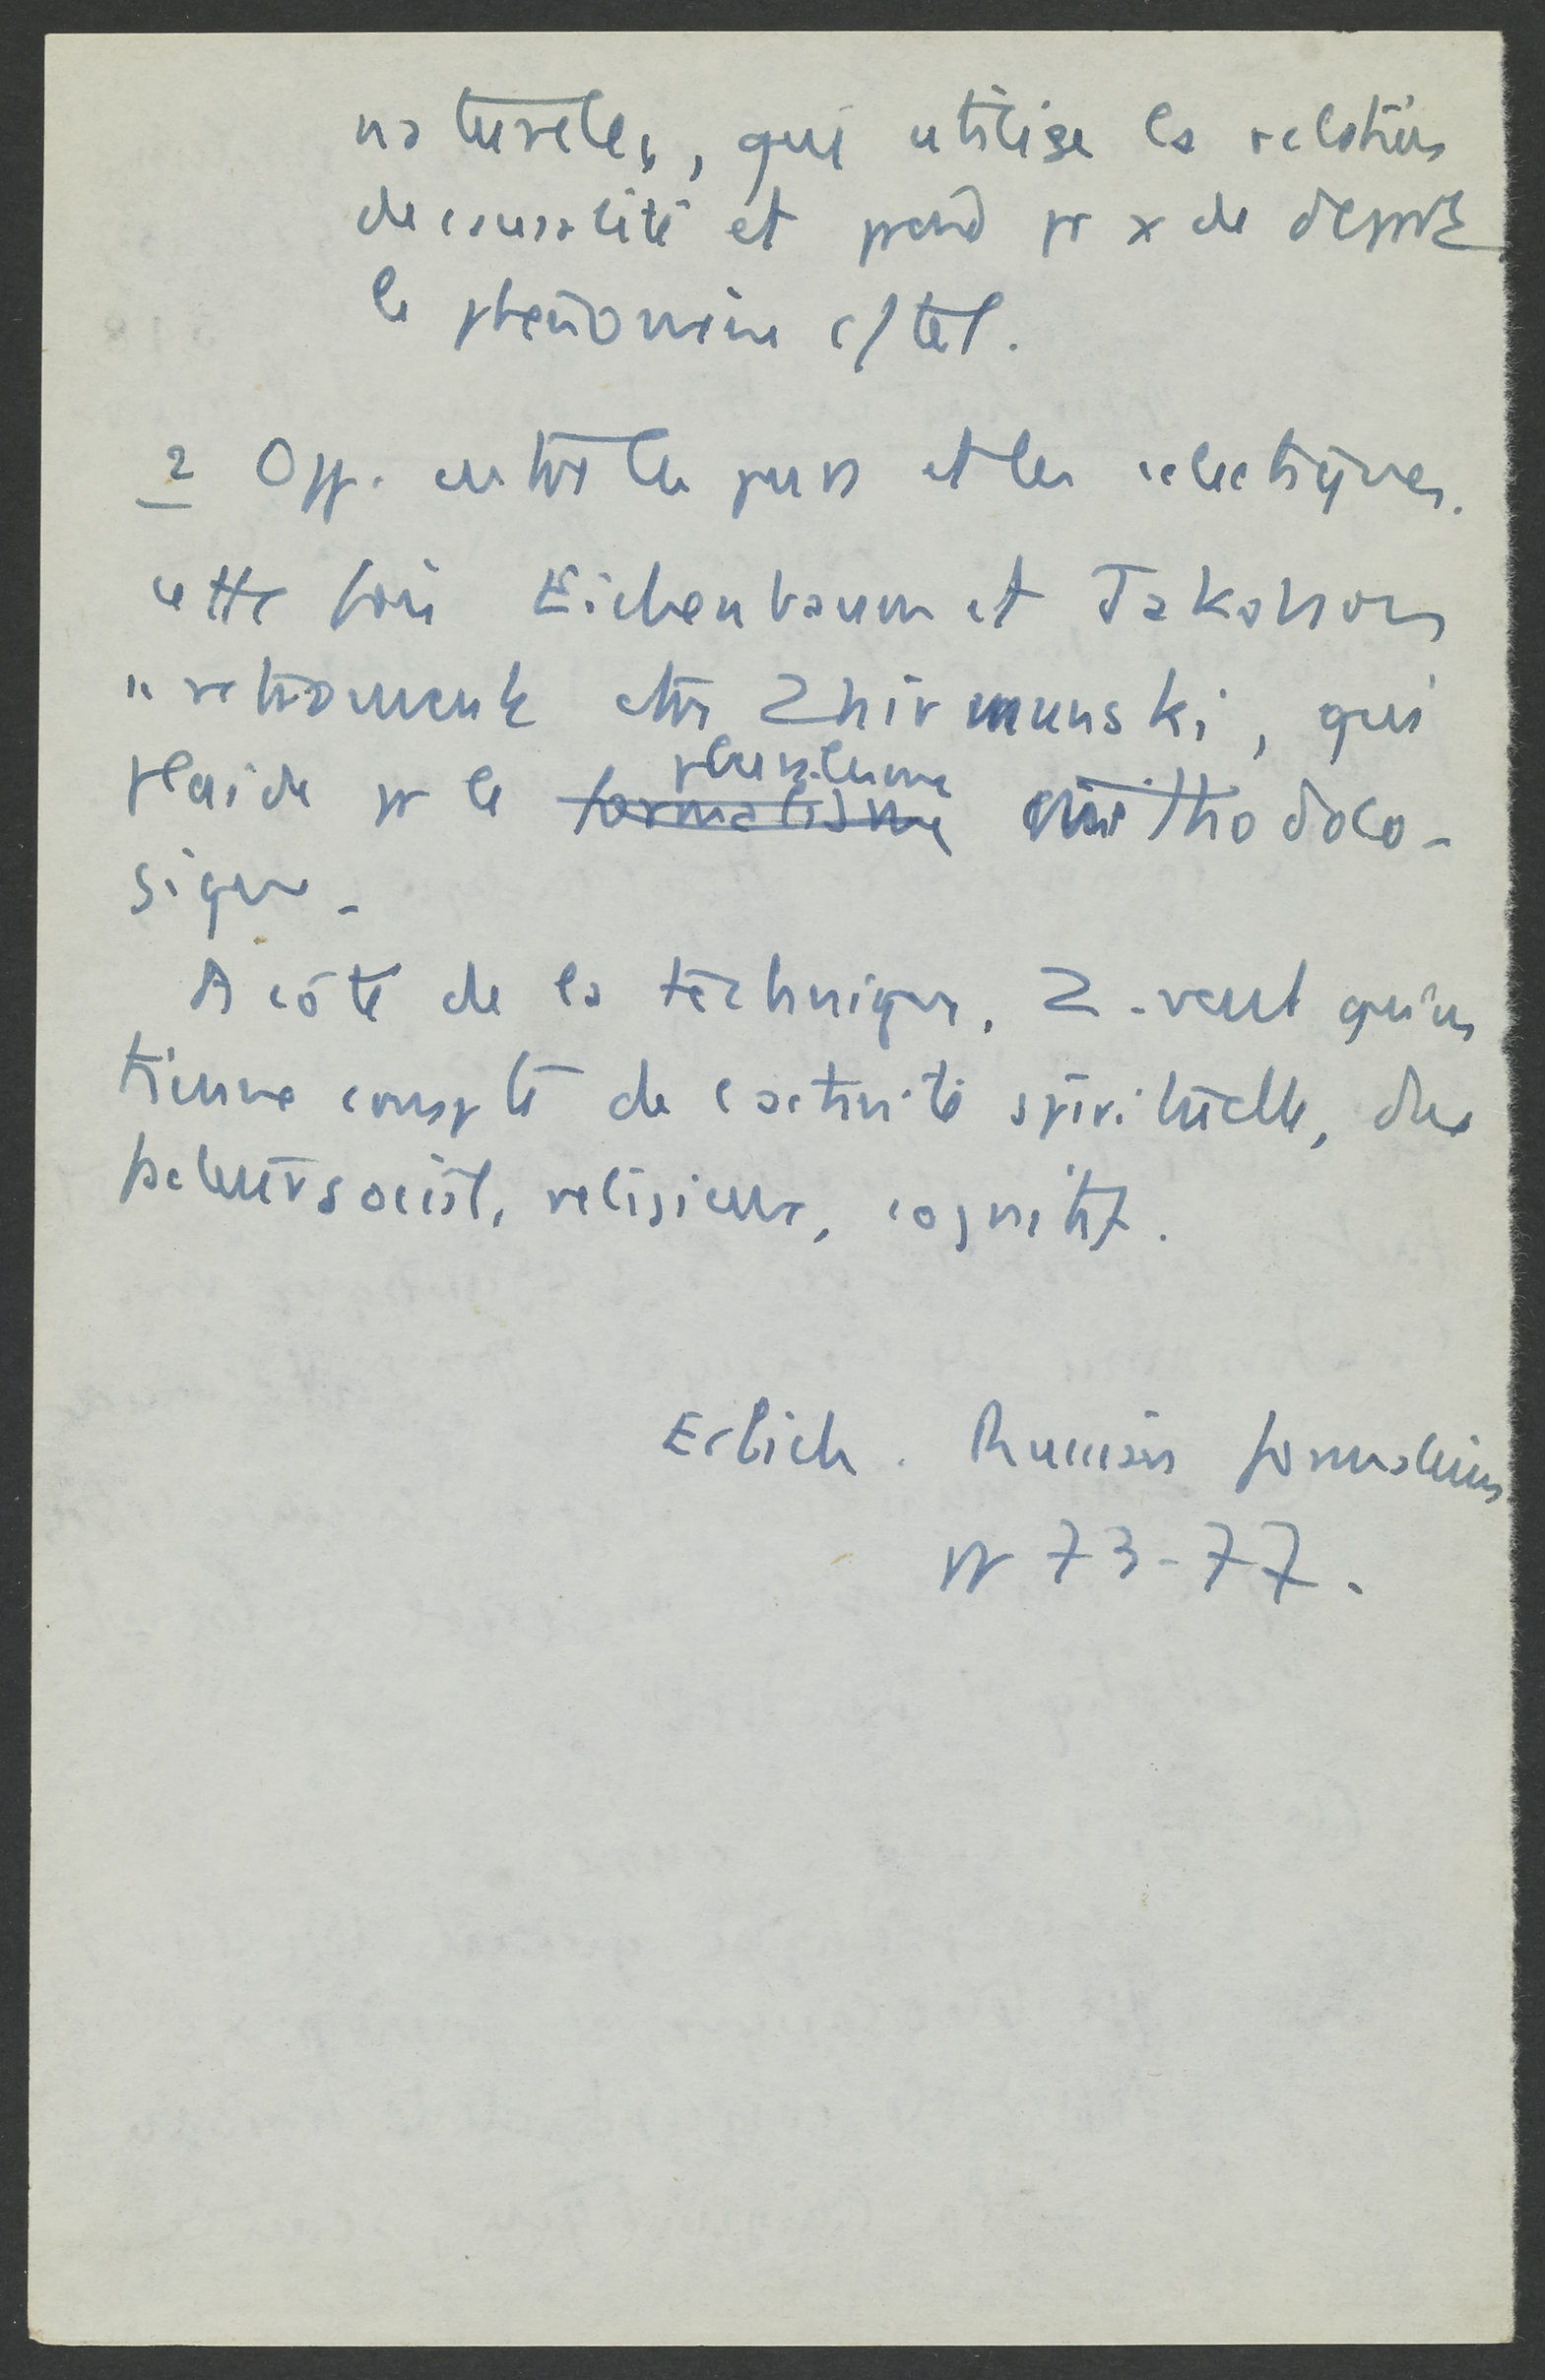 naturelles, qui utilise la relation
de causalité et prend pr x de départ
le phénomène c/ tel.
2 Opp. entre les purs et les eclectiques.
cette fois Eichenbaum et Jakobson
se retrouvent ctre Zhirmunski, qui
plaide pr le pluralisme méthodolo-
gique.
A côté de la technique, Z. veut qu'on
tienne compte de l'activité spirituelle, des
facteurs social, religieux, cognitif.
Erlich. Russian formalism
pp 73-77.